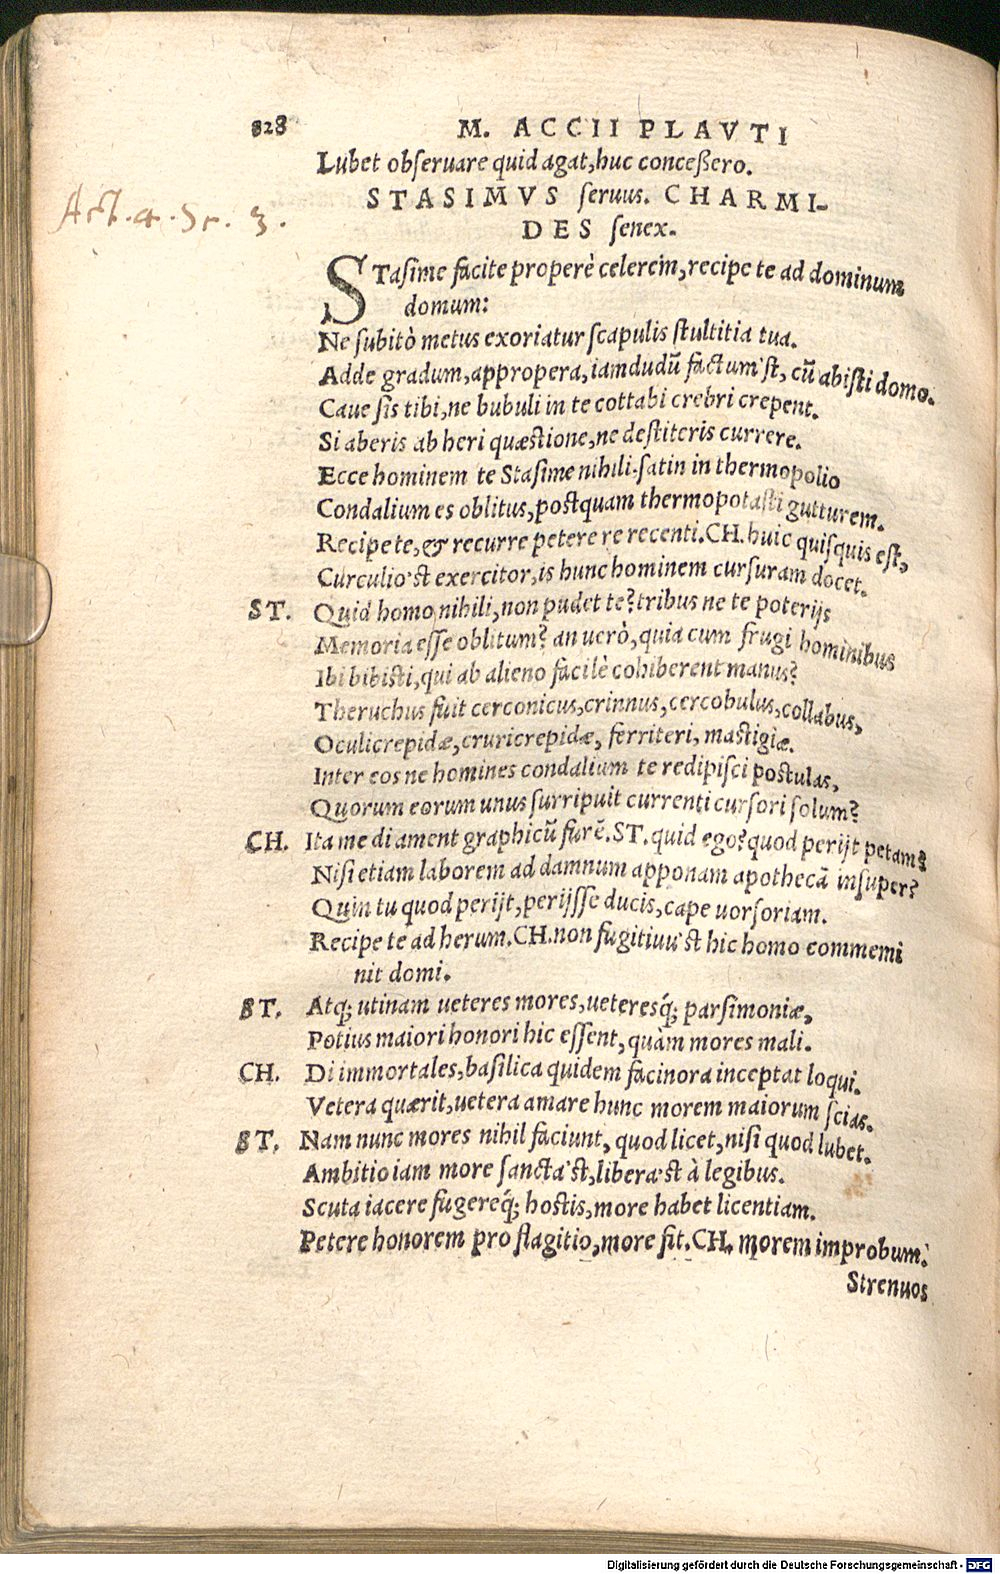 828 M. ACCII PLAVTI
Lubet obseruare quid agat, huc conceßero.
Act. 4. Sc. 3.
STASIMVS seruus. CHARMI-
DES senex.
STasime facite properè celerem, recipe te ad dominum
domum:
Ne subitò metus exoriatur scapulis stultitia tua.
Adde gradum, appropera, iamdudũ factum'st, cũ abisti domo.
Caue sis tibi, ne bubuli in te cottabi crebri crepent.
Si aberis ab heri quæstione, ne destiteris currere.
Ecce hominem te Stasime nihili. satin in thermopolio
Condalium es oblitus, postquam thermopotasti gutturem.
Recipe te, & recurre petere re recenti. CH. huic quisquis est,
Curculio'st exercitor, is hunc hominem cursuram docet.
ST. Quid homo nihili, non pudet te? tribus ne te poterijs
Memoria esse oblitum? an uerò, quia cum frugi hominibus
Ibi bibisti, qui ab alieno facilè cohiberent manus?
Theruchus fuit cerconicus, crinnus, cercobulus, collabus,
Oculicrepidæ, cruricrepidæ, ferriteri, mastigiæ.
Inter eos ne homines condalium te redipisci postulas,
Quorum eorum unus surripuit currenti cursori solum?
CH. Ita me di ament graphicũ furẽ. ST. quid ego? quod perijt petam?
Nisi etiam laborem ad damnum apponam apothecã insuper?
Quin tu quod perijt, perijsse ducis, cape uorsoriam.
Recipe te ad herum. CH. non fugitiuu'st hic homo commemi
nit domi.
ST. Atq; utinam ueteres mores, ueteresq́; parsimoniæ,
Potius maiori honori hic essent, quàm mores mali.
CH. Di immortales, basilica quidem facinora inceptat loqui.
Vetera quærit, uetera amare hunc morem maiorum scias.
ST. Nam nunc mores nihil faciunt, quod licet, nisi quod lubet.
Ambitio iam more sancta'st, libera'st à legibus.
Scuta iacere fugereq́; hostis, more habet licentiam.
Petere honorem pro flagitio, more fit. CH. morem improbum.
Strenuos
Digitalisierung gefördert durch die Deutsche Forschungsgemeinschaft - DFG